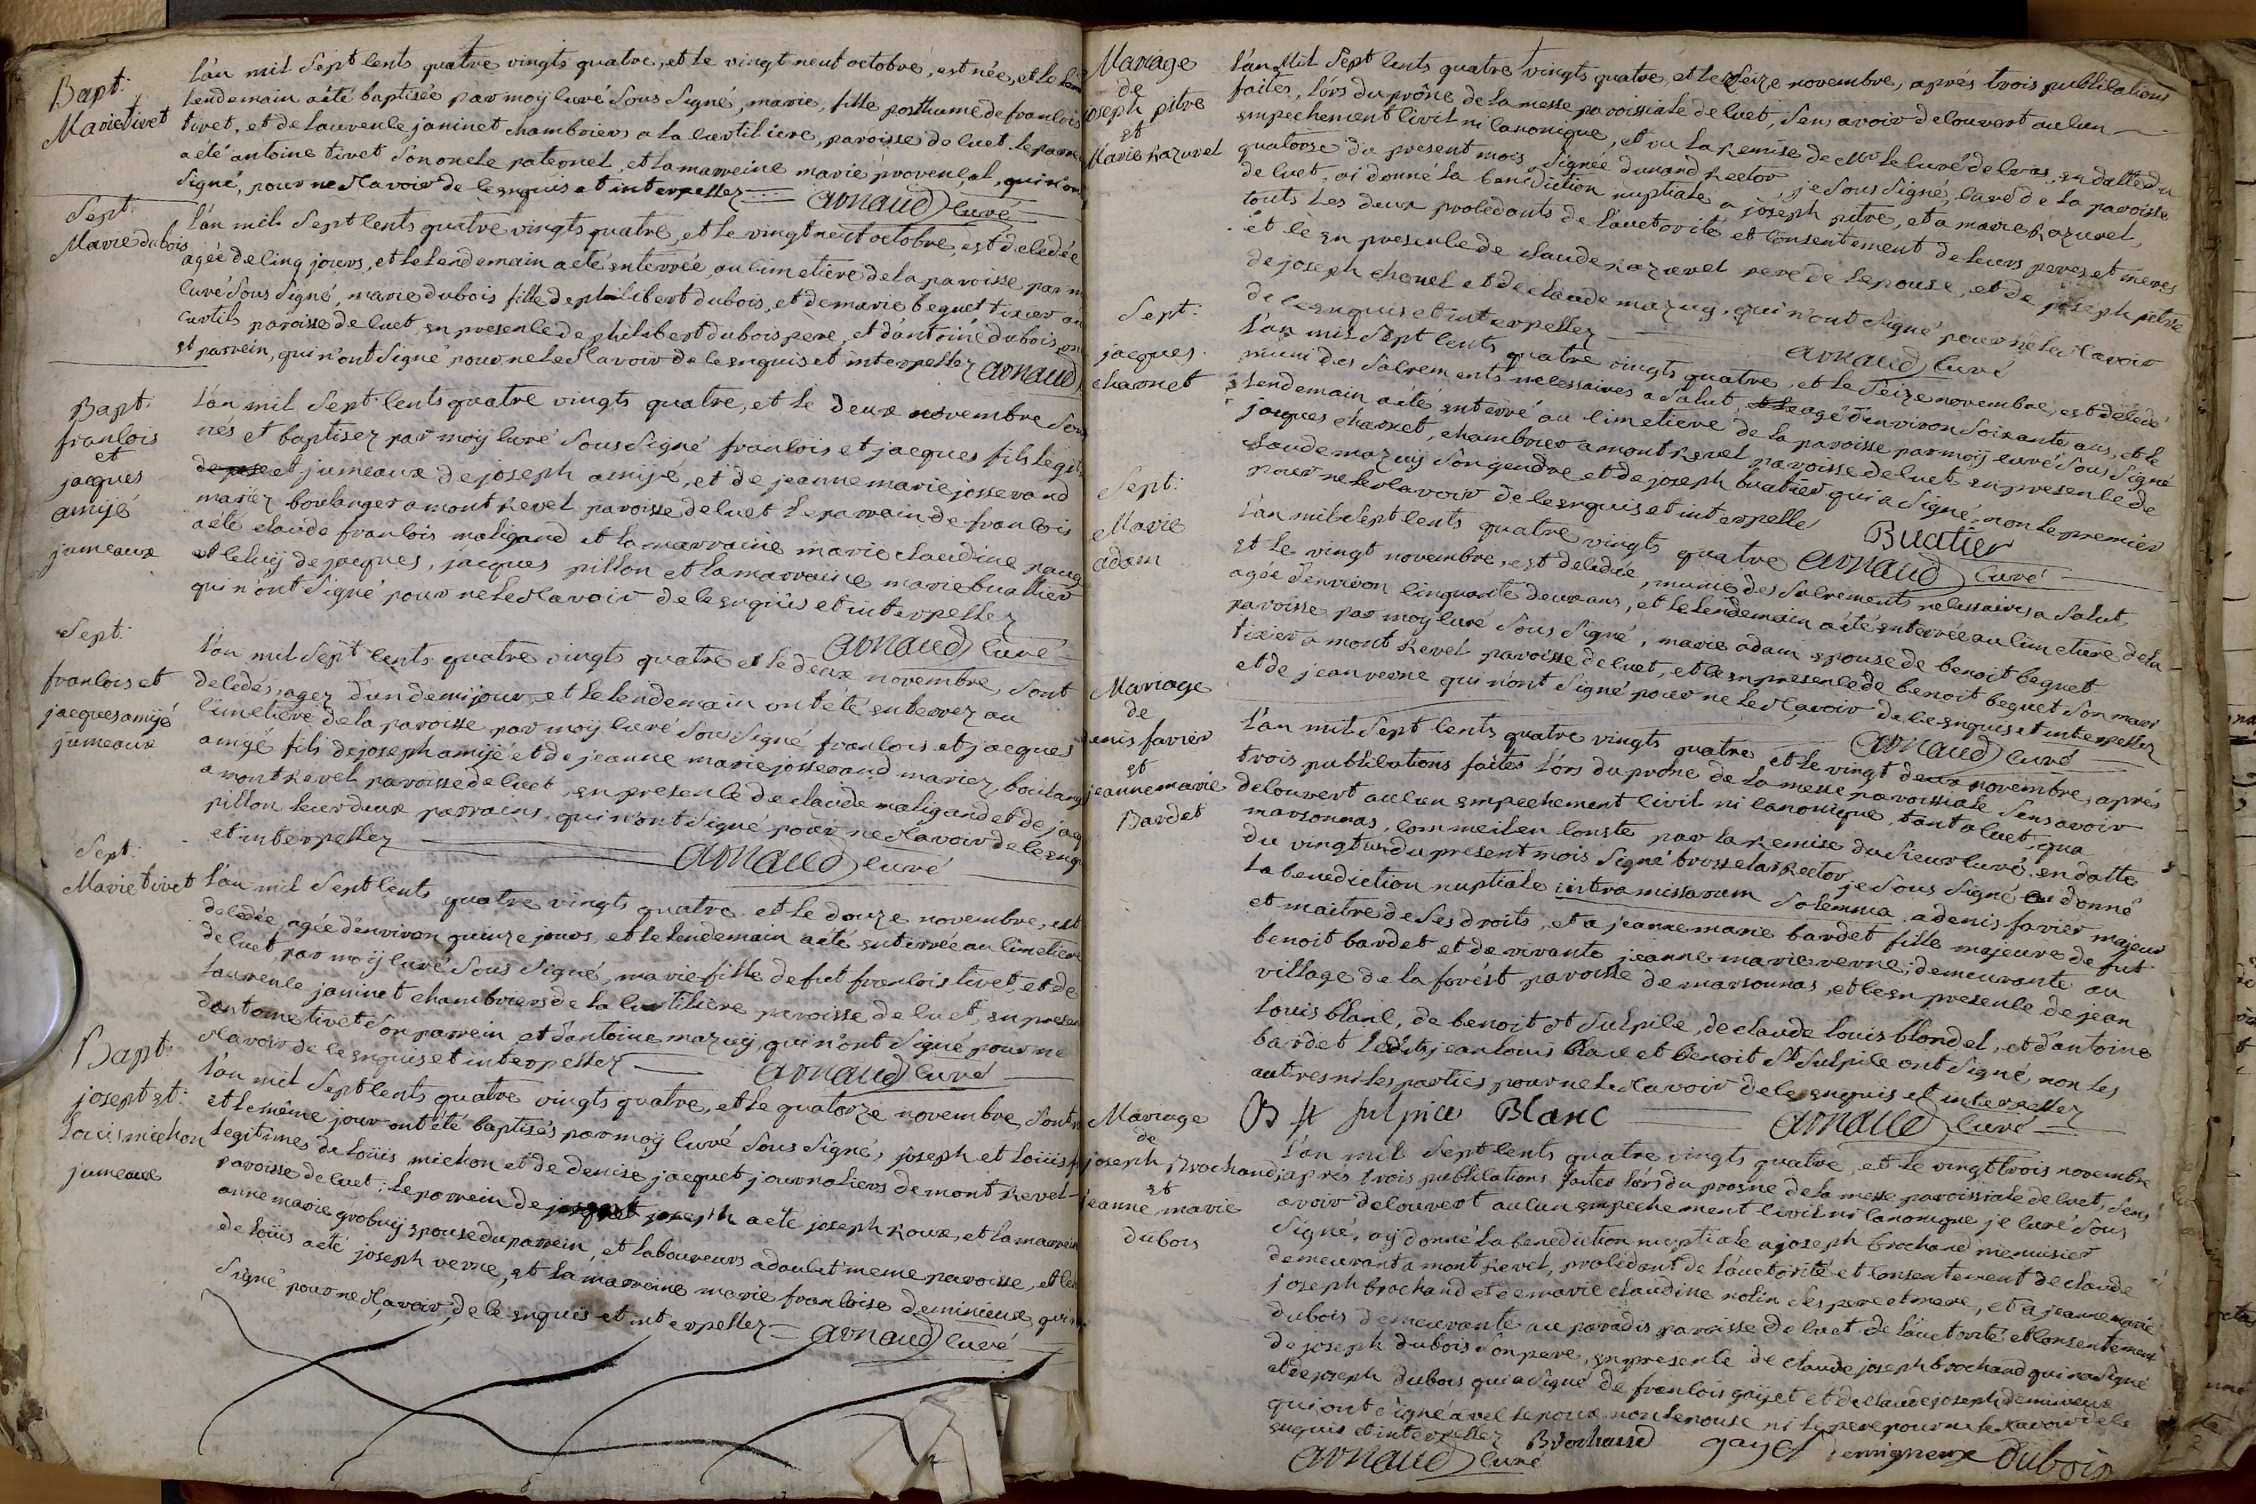 Bapt:
Marie tivet
L'an mil Sept Cents quatre vingts quatre, et le vingt neuf octobre, est née, et le
Lendemain a été baptisée par moÿ Curé Sous Signé, marie, fille posthume de francois
tivet, et de Laurence janinet chambriers a la Curtiliere, paroisse de Cuet. Le parrein
a été antoine tivet Son oncle paternel, et la marreine marie provençal, qui n'ont
Signé, pour ne Scavoir de ce enquis et interpellez ARNAUD Curé
Sept:
Marie dubois
L'an mil Sept Cents quatre vingts quatre, et le vingt neuf octobre, est decedée
agée de Cinq jours, et le Lendemain a eté enterrée au Cimetiere de la paroisse par moÿ
Curé Sous Signé, marie dubois fille de philibert dubois, et de marie beguet tixier au
Curtil paroisse de Cuet, en presence de philibert dubois pere, et d'antoine dubois
et parrein, qui n'ont Signé pour ne Le Scavoir de Ce enquis et interpellez ARNAUD
Bapt:
francois
et
jacques
amijé
jumeaux
L'an mil Sept Cents quatre vingts quatre, et le deux novembre Sont
nés et baptisez par moÿ Curé Sous Signé francois et jacques fils legit
et jumeaux de joseph amijé, et de jeanne marie josserand
mariez boulanger a mont Revel paroisse de Cuet Le parrain de francois
a été claude francois maligand et la marraine marie claudine
et celuy de jacques, jacques pillon et la marraine marie buattier
qui n'ont Signé pour ne Le Scavoir de Ce enquis et interpellez
ARNAUD Curé
Sept:
francois et
jacques amijé
jumeaux
L'an mil Sept Cents quatre vingts quatre et le deux novembre, Sont
decedés, agez d'un demi jour, et le lendemain ont été enterrez au
Cimetiere de la paroisse par moÿ Curé Sous Signé francois et jacques
amijé fils de joseph amijé et de jeanne marie josserand mariez, boulanger
a mont Revel paroisse de Cuet, en presence de claude maligand et de jacques
pillon leur deux parrains, qui n'ont Signé pour ne Scavoir de Ce enquis
et interpellez ARNAUD Curé
Sept:
Marie tivet
L'an mil Sept Cents quatre vingts quatre et le douze novembre, est
decedée agée d'environ quinze jours, et le Lendemain a été enterrée au Cimetiere
de Cuet, par moÿ Curé Sous Signé, marie fille de fut francois tivet, et de
Laurence janinet chambriers de la Curtiliere paroisse de Cuet, en presence
d'antoine tivet Son parrein et d'antoine mazuy, qui n'ont Signé pour ne
Scavoir de Ce enquis et interpellez ARNAUD Curé
Bapt:
joseph et
Louis michon
jumeaux
L'an mil Sept Cents quatre vingts quatre, et le quatorze novembre Sont
et le même jour ont été baptisés par moÿ Curé Sous Signé, joseph et Loüis
Legitimes de Loüis michon et de denise jacquet journaliers de mont Revel
paroisse de Cuet; Le parrein de joseph a été joseph Roux, et la marreine
anne marie grobuy epouse du parrein, et Laboureurs a meme paroisse, et
de Loüis a eté joseph verne, et la marreine marie francoise demineux, qui
Signé pour ne Scavoir, de Ce enquis et interpellez ARNAUD Curé
Mariage
de
joseph pitre
et
Marie Razurel
L'an Mil Sept Cents quatre vingts quatre, et le Seize novembre, aprés trois publications
faites, Lors du prône de la messe paroissiale de Cuet, Sens avoir decouvert aucun
empechement Civil ni Canonique, et vu la Remise de Mr le Curé de en datte du
quatorse du present mois, Signée durand Rector, je Sous Signé, Curé de la paroisse
de Cuet, ai donné la benediction nuptiale a joseph pitre, et a marie Razurel,
touts Les deux procedants de L'auctorité et Consentement de Leurs peres et meres
et Ce en presence de claude Razurel pere de Lepouse, et de joseph pitre
de joseph chenel et de claude mazuy, qui n'ont Signé pour ne le Scavoir
de Ce enquis et interpellez ARNAUD Curé
Sept:
jacques
charnet
L'an mil Sept Cents quatre vingts quatre, et le Seize novembre, est decedé
muni des Sacrements necessaires a Salut, agé d'environ Soixante ans, et le
Lendemain a été enterré au Cimetiere de la paroisse par moÿ Curé Sous Signé
jacques charnet, chambrier a mont Revel paroisse de Cuet en presence de
claude mazuy Son gendre et de joseph buatier qui a Signé, non le premier
pour ne le Scavoir de Ce enquis et interpellé Buatier
ARNAUD Curé
Sept:
Marie
adam
L'an mil Sept Cents quatre vingts quatre
et le vingt novembre, est decedée, munie des Sacrements necessaires a Salut,
agée d'environ Cinquante deux ans, et le Lendemain a été enterrée au Cimetiere de la
paroisse par moÿ Curé Sous Signé, marie adam epouse de benoit beguet
tixier a mont Revel paroisse de Cuet, et Ce en presence de benoit beguet Son mari
et de jean verne qui n'ont Signé pour ne le Scavoir de Ce enquis et interpellez
ARNAUD Curé
Mariage
de
denis favier
et
jeanne marie
Bardet
L'an mil Sept Cents quatre vingts quatre, et le vingt deux novembre, aprés
trois publications faites Lors du prone de la messe paroissiale, Sens avoir
decouvert aucun empechement Civil ni Canonique, tant a Cuet, qu'a
marsonnas, Comme il en Conste par la Remise du Sieur Curé, en datte
du vingt un du present mois Signé brosselar Rector, je Sous Signé ai donné
la benediction nuptiale intra missarum Solemnia a denis favier majeur
et maitre de Ses droits, et a jeanne marie bardet fille majeure de fut
benoit bardet et de vivante jeanne marie verne, demeurante au
village de la forêst paroisse de marsonnas, et Ce en presence de jean
Louis blanc, de benoit St Sulpice, de claude Louis blondel, et d'antoine
bardet Lesdits jean Louis blanc et benoit St Sulpice ont Signé, non les
autres ni les parties pour ne le Scavoir de Ce enquis et interpellez
B St Sulpice Blanc ARNAUD Curé
Mariage
de
joseph Brochand
et
jeanne marie
dubois
L'an mil Sept Cents quatre vingts quatre, et le vingt trois novembre
aprés trois publications faites Lors du prosne de la messe paroissiale de Cuet, Sens
avoir decouvert aucun empechement Civil ni Canonique je Curé Sous
Signé, aÿ donné la benediction nuptiale a joseph brochand menuisier
demeurant a mont Revel, procedant de L'auctorité et Consentement de claude
joseph brochand et de marie claudine nolin Ses pere et mere, et a jeanne marie
dubois demeurante au paradis paroisse de Cuet de L'auctorité et Consentement
de joseph dubois Son pere, en presence de claude joseph brochand qui n'a Signé
et de joseph dubois qui a Signé de francois gayet et de claude joseph demineux
qui ont Signé avec Lepoux non Lepouse ni le pere pour ne le Scavoir de Ce
enquis et interpellez Brochand gayet demigneux Dubois
ARNAUD Curé